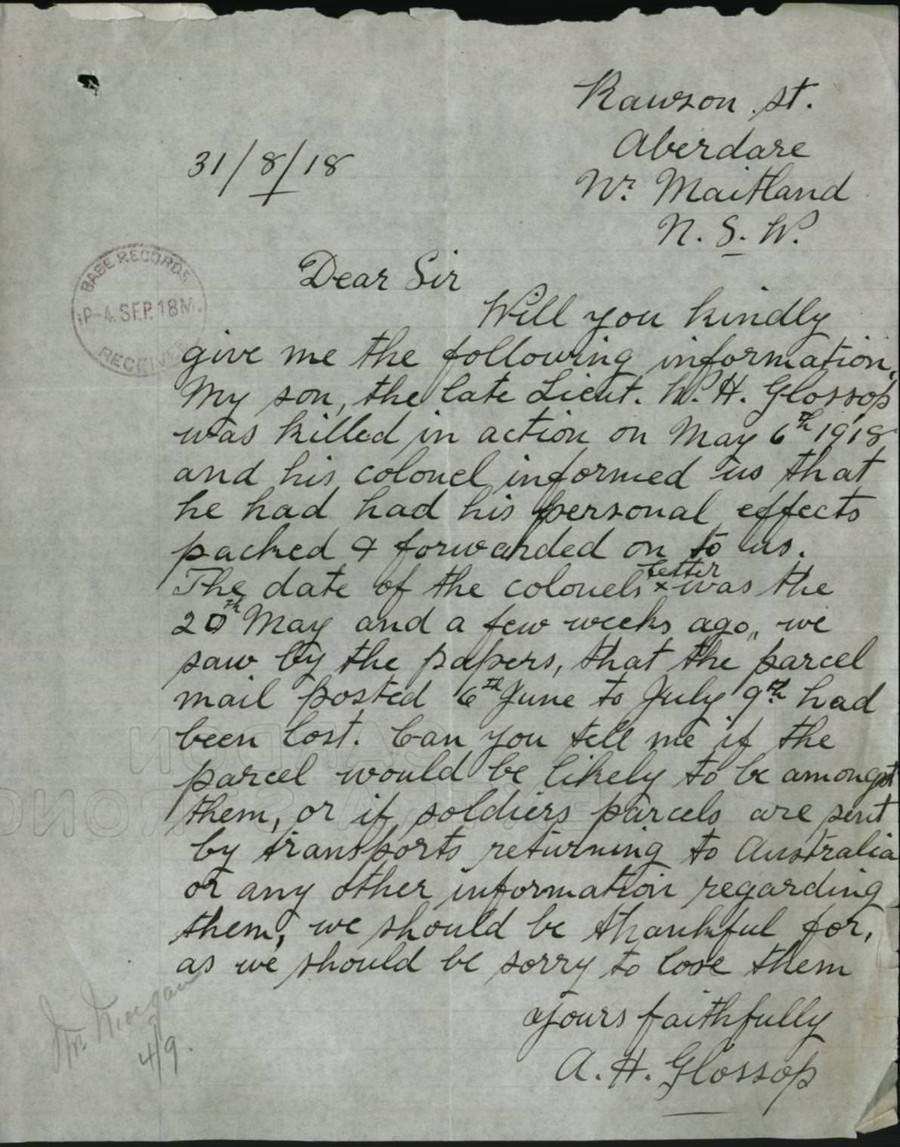 Rawson St.
Aberdare
Nr. Maitland
N. S. W.
31/8/18
BASE RECORDS
P-4 SEP. 18 M.
RECEIVED
Dear Sir
Will you kindly
give me the following information.
My son, the late Lieut. W. H. Glossop
was killed in action on May 6th 1918
and his colonel informed us that
he had had his personal effects
packed & forwarded on to us.
The date of the colonels letter was the
20th May and a few weeks ago, we
saw by the papers, that the parcel
mail posted 6th June to July 9th had
been lost. Can you tell me if the
parcel would be likely to be amongst
them, or if soldiers parcels are sent
by transports returning to Australia
or any other information regarding
them, we should be thankful for,
as we should be sorry to lose them
Yours faithfully
A. H. Glossop
4/9.